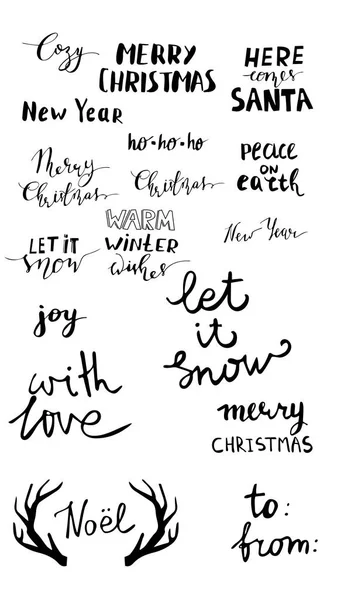 Cozy
MERRY
CHRISTMAS
HERE
comes
SANTA
New Year
ho-ho-ho
Merry
Christmas
Christmas
peace
on
earth
WARM
WiNtER
wishes
LET iT
snow
New Year
let
it
snow
joy
with
love
merry
CHRISTMAS
Noël
to:
from: